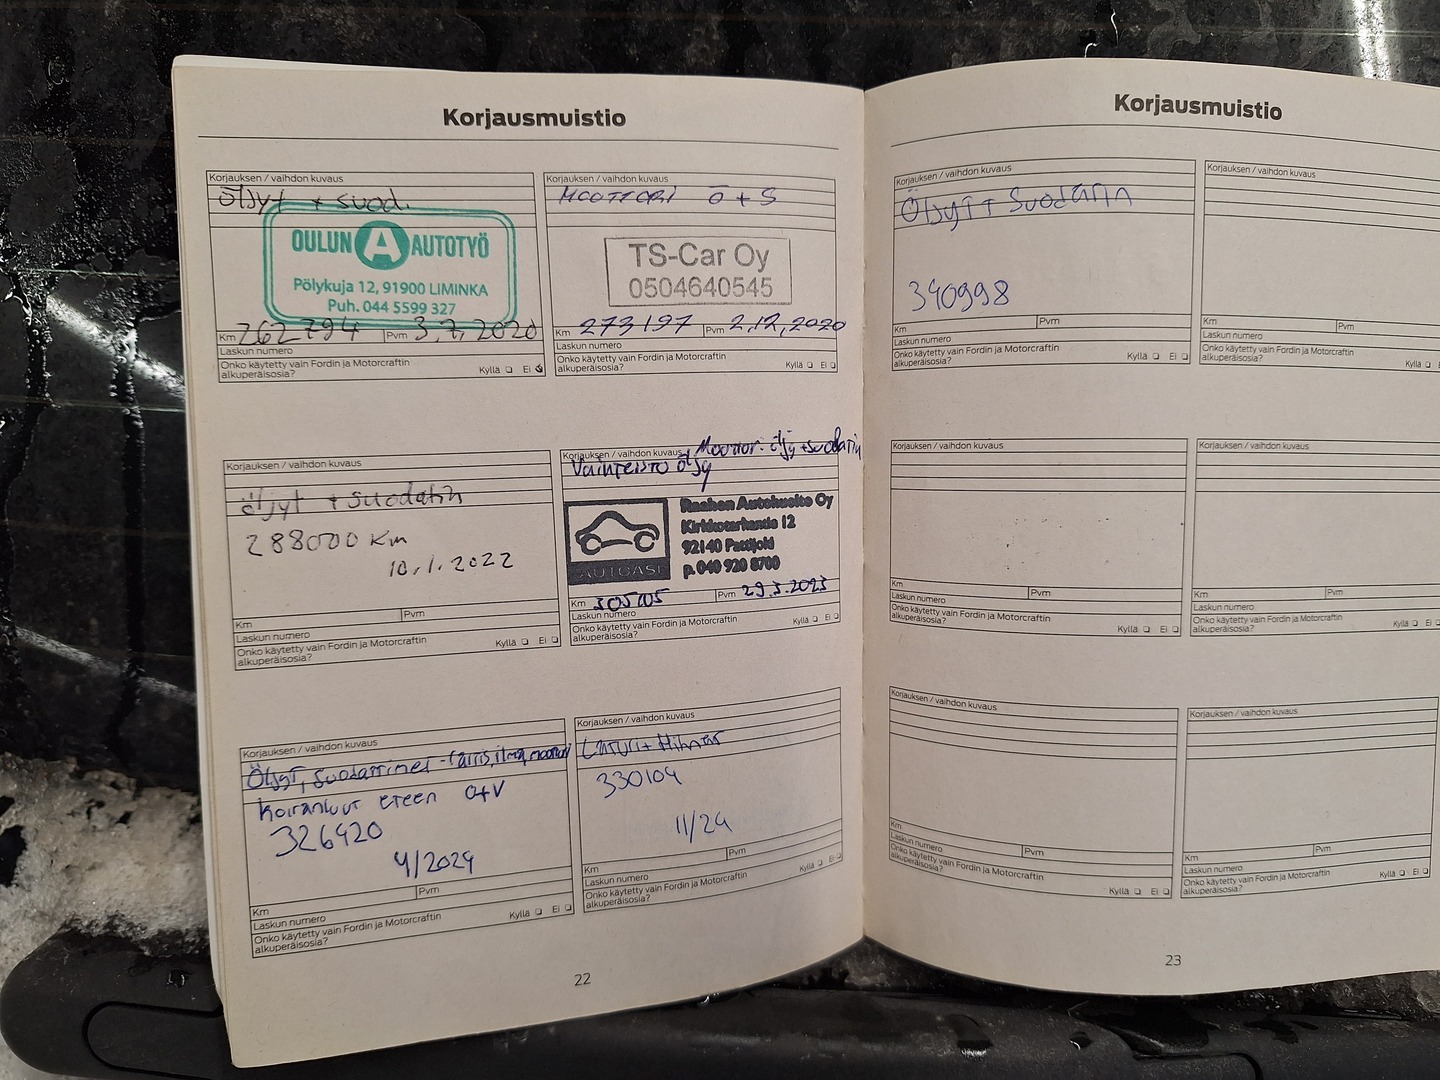 Korjausmuistio
Korjauksen / vaihdon kuvaus
öljyt + suod.
OULUN A AUTOTYÖ
Pölykuja 12, 91900 LIMINKA
Puh. 044 5599 327
Km 262794 Pvm 3.7.2020
Laskun numero
Onko käytetty vain Fordin ja Motorcraftin
alkuperäisosia? Kyllä Ei
Korjauksen / vaihdon kuvaus
MOOTTORI Ö + S
TS-Car Oy
0504640545
Km 273197 Pvm 2.12.2020
Laskun numero
Onko käytetty vain Fordin ja Motorcraftin
alkuperäisosia? Kyllä Ei
Korjauksen / vaihdon kuvaus
öljyt + suodatin
288000 Km
10.1.2022
Km Pvm
Laskun numero
Onko käytetty vain Fordin ja Motorcraftin
alkuperäisosia? Kyllä Ei
Korjauksen / vaihdon kuvaus
Moottori öljy + suodatin
Vaihteisto öljy
Raahen Autohuolto Oy
Kirkkotarhantie 12
92140 Pattijoki
p. 040 920 8700
AUTOASI
Km 305105 Pvm 29.3.2023
Laskun numero
Onko käytetty vain Fordin ja Motorcraftin
alkuperäisosia? Kyllä Ei
Korjauksen / vaihdon kuvaus
Öljyt, suodattimet - raitis, ilma, moottori
Koiranluut eteen O+V
326420
4/2024
Km Pvm
Laskun numero
Onko käytetty vain Fordin ja Motorcraftin
alkuperäisosia? Kyllä Ei
Korjauksen / vaihdon kuvaus
Laturi + Hihnat
330104
11/24
Km Pvm
Laskun numero
Onko käytetty vain Fordin ja Motorcraftin
alkuperäisosia? Kyllä Ei
22
Korjausmuistio
Korjauksen / vaihdon kuvaus
Öljyt + Suodatin
340998
Km Pvm
Laskun numero
Onko käytetty vain Fordin ja Motorcraftin
alkuperäisosia? Kyllä Ei
Korjauksen / vaihdon kuvaus
Km Pvm
Laskun numero
Onko käytetty vain Fordin ja Motorcraftin
alkuperäisosia? Kyllä E
Korjauksen / vaihdon kuvaus
Km Pvm
Laskun numero
Onko käytetty vain Fordin ja Motorcraftin
alkuperäisosia? Kyllä Ei
Korjauksen / vaihdon kuvaus
Km Pvm
Laskun numero
Onko käytetty vain Fordin ja Motorcraftin
alkuperäisosia? Kyllä Ei
Korjauksen / vaihdon kuvaus
Km Pvm
Laskun numero
Onko käytetty vain Fordin ja Motorcraftin
alkuperäisosia? Kyllä Ei
Korjauksen / vaihdon kuvaus
Km Pvm
Laskun numero
Onko käytetty vain Fordin ja Motorcraftin
alkuperäisosia? Kyllä Ei
23